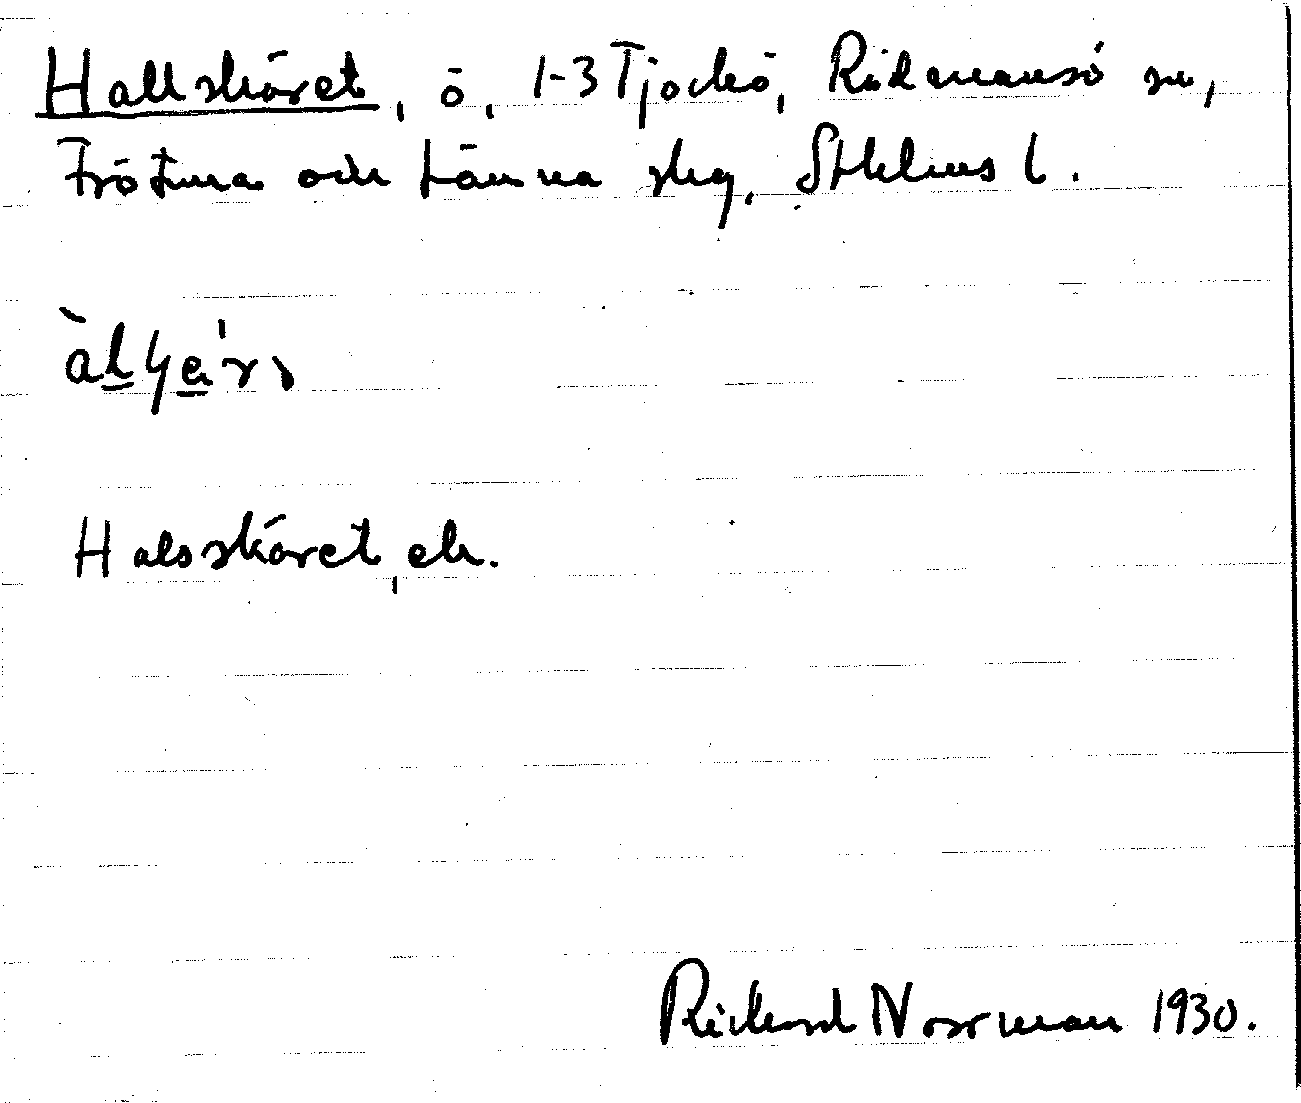 Hallskäret, ö, 1-3 Tjockö, Rådmansö sn,
Frötuna och Länna skg, Sthlms l.
Halsskäret, ek.
Rickard Norrman 1930.